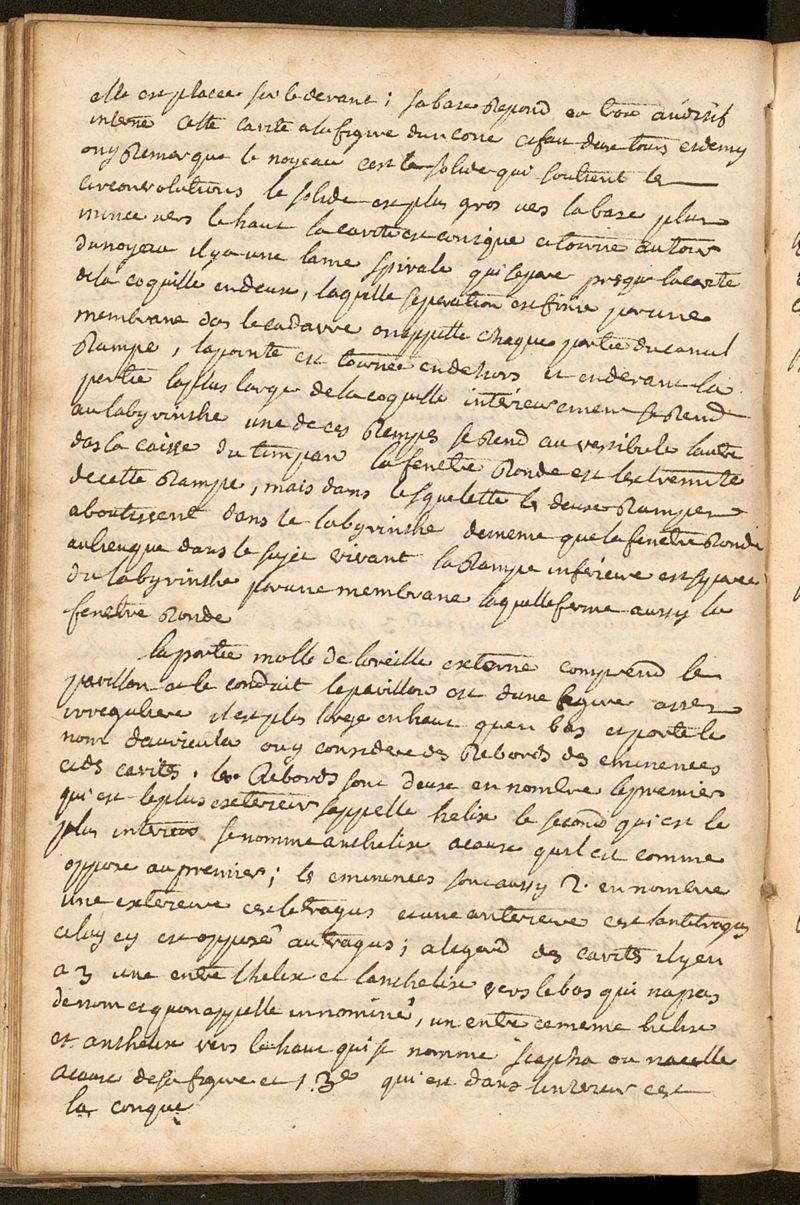 elle est placee sur le devant ; sa base repond au trou auditif
interne cette cavite a la figure dun cone et fait deux tours et demy
on y remarque le noyeau cest le solide qui soutient les
circonvolutions le solide est plus gros vers la base plus
mince vers le haut la cavite est conique et tourne autour
du noyeau il y a une lame spirale qui separe presque la cavite
de la coquille en deux, laquelle separation est finie par une
membrane dans le cadavre on appelle chaque partie du canal
Rampe, la pointe est tournee en dehors et en devant la
partie la plus large de la coquille interieurement se rend
au labyrinthe une de ces Rempes se rend au vestibule lautre
dans la caisse du timpan la fenetre Ronde est lextremite
de cette Rampe, mais dans le squelette les deux Rampes
aboutissent dans le labyrinthe de meme que la fenetre Ronde
au lieu que dans le sujet vivant la Rampe inferieure est separee
du labyrinthe par une membrane laquelle ferme aussy la
fenetre Ronde
la partie molle de loreille externe comprend le
pavillon et le conduit le pavillon est dune figure assez
irreguliere il est plus large en haut quen bas et porte le
nom dauricula on y considere des Rebords des eminences
et des cavites. les Rebords sont deux en nombre le premier
qui est le plus exterieur sappelle helix le second qui est le
plus interieur se nomme anthelix a cause quil est comme
oppose au premier ; les eminences sont aussy 2. en nombre
une exterieure cest le tragus et une anterieure cest lantitragus
celuy cy est oppose au tragus ; a legard des cavites il y en
a 3 une entre lhelix et lanthelix vers le bas qui na pas
de nom et quon appelle innominé, un entre ce meme helix
et anthelix vers le haut qui se nomme scapha ou nacelle
a cause de sa figure et 1. 3e qui est dans linterieur cest
la conque